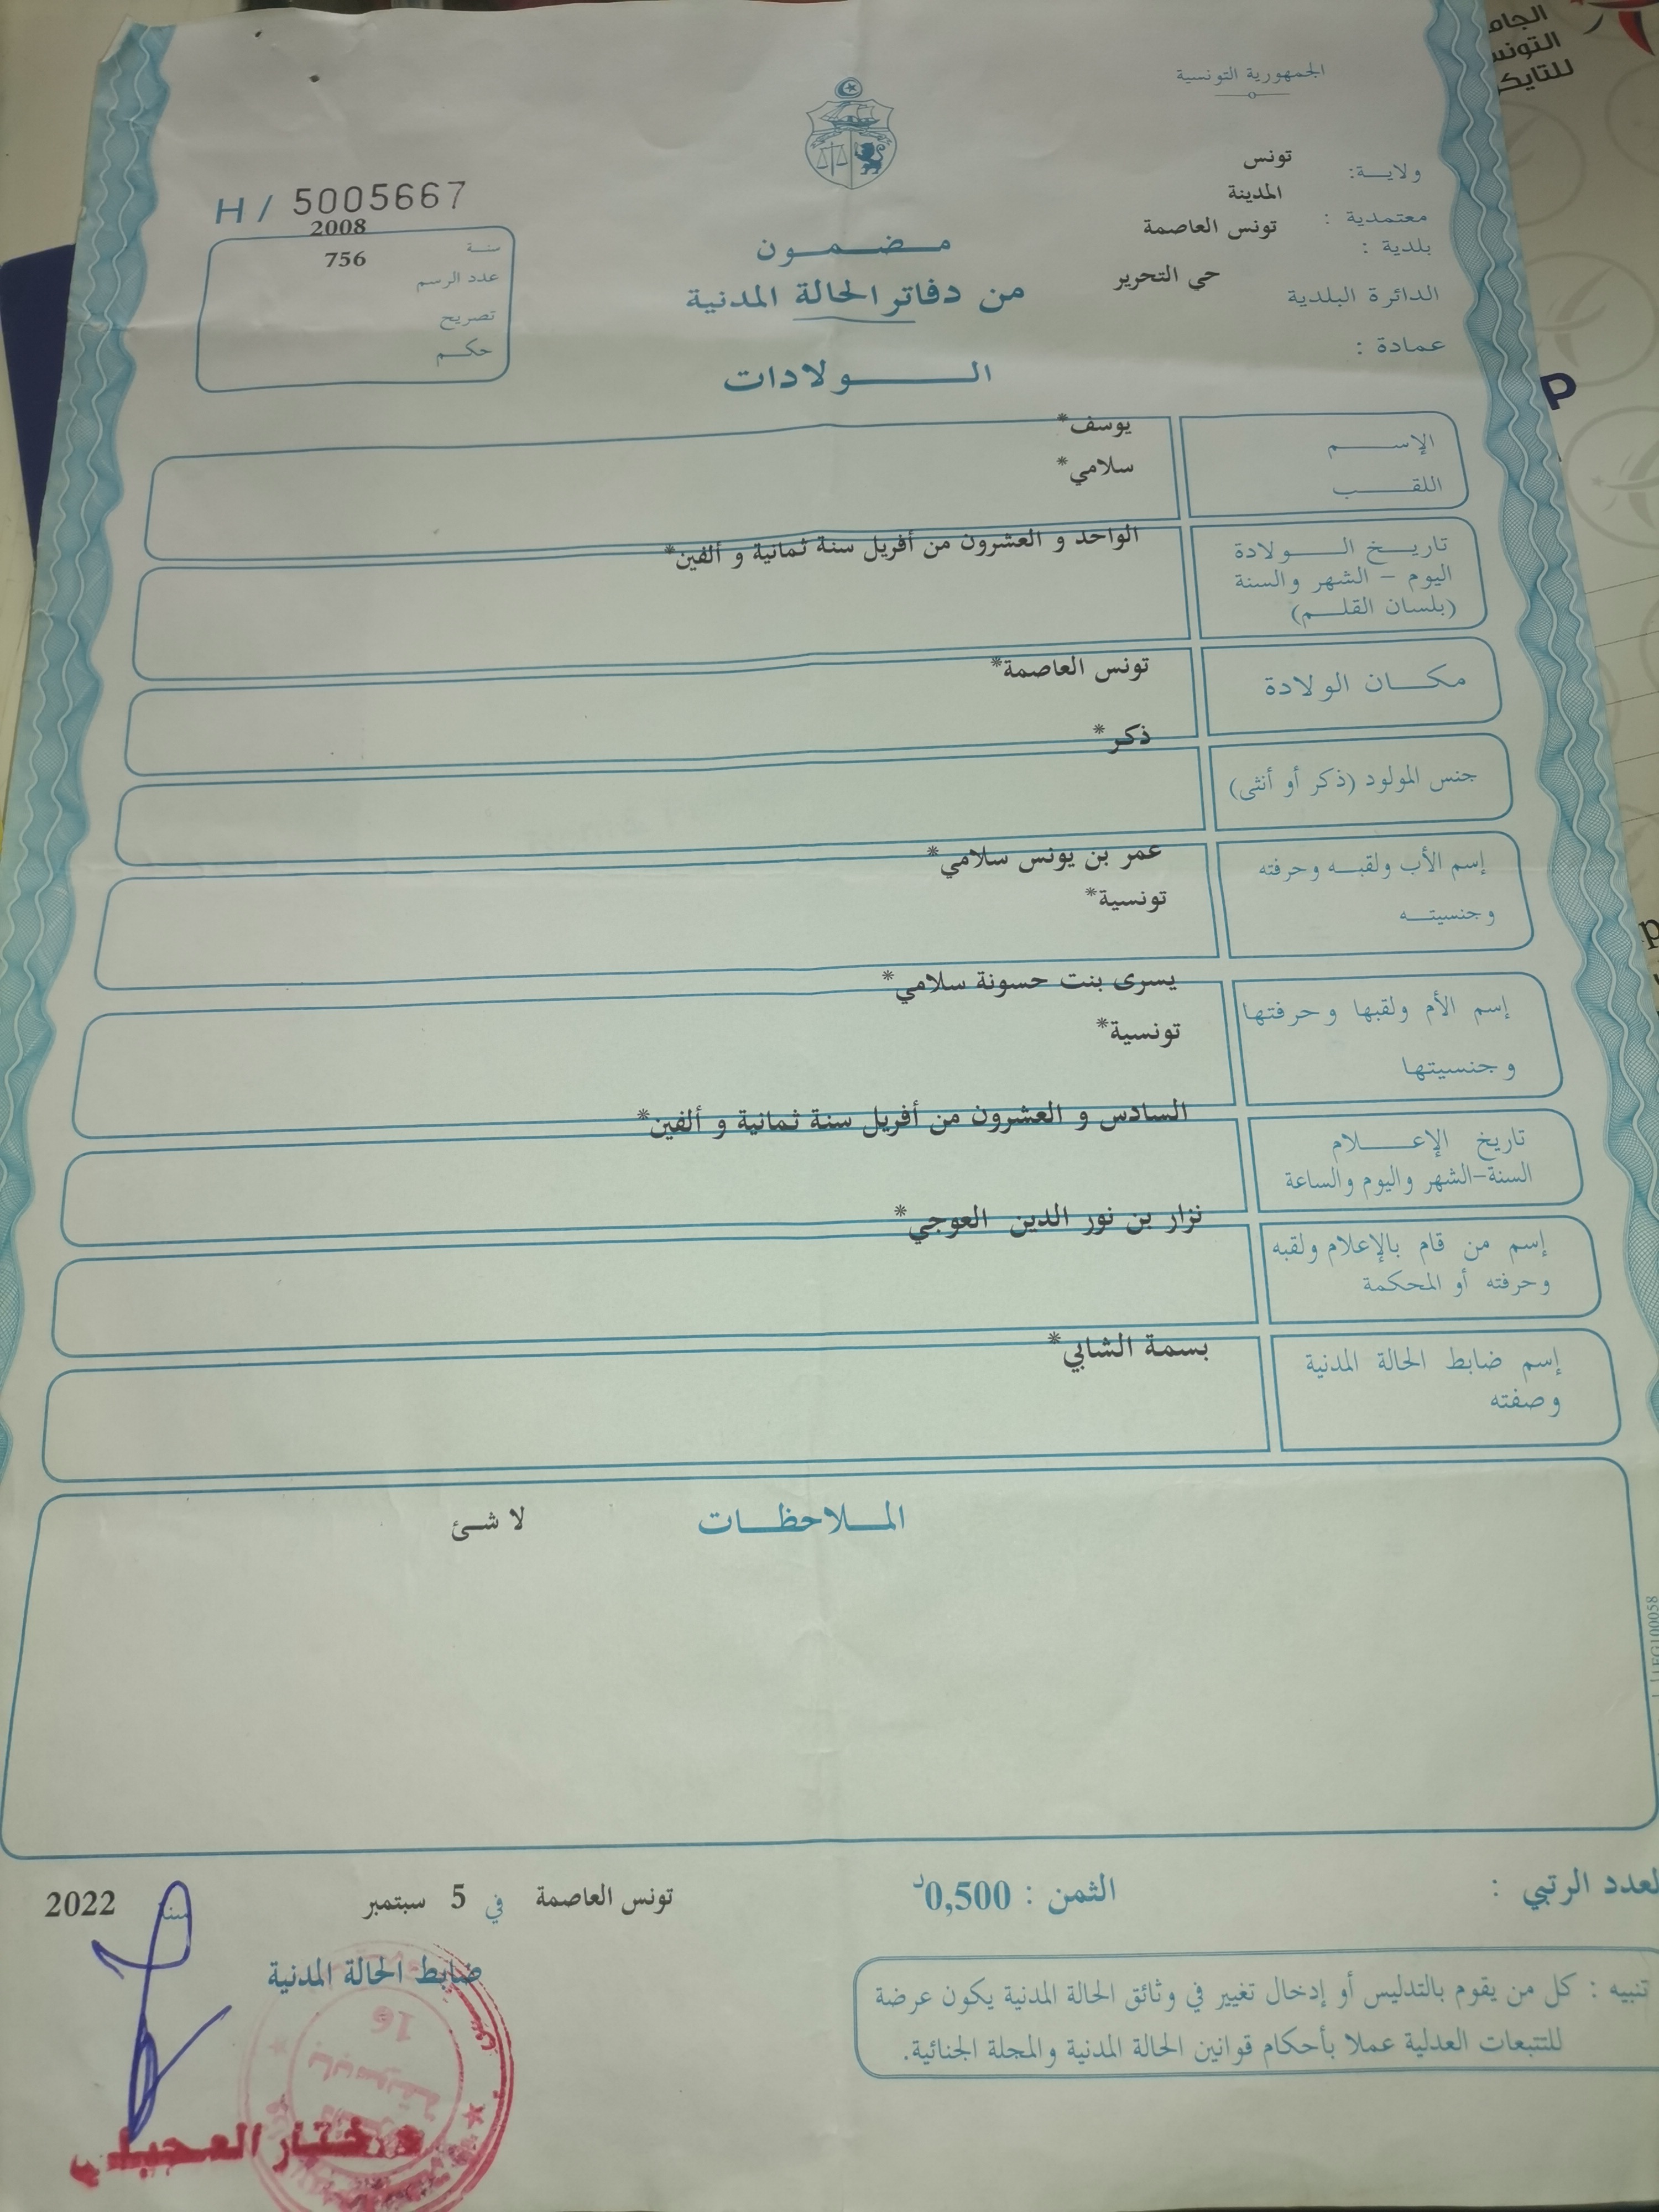 الجمهورية التونسية
ولاية: تونس
معتمدية : المدينة
بلدية : تونس العاصمة
الدائرة البلدية حي التحرير
عمادة :
H / 5005667
سنة 2008
عدد الرسم 756
تصريح
حكم
مضمون
من دفاتر الحالة المدنية
الولادات
الإسم يوسف*
اللقب سلامي*
تاريخ الولادة
اليوم - الشهر والسنة
(بلسان القلم)
الواحد و العشرون من أفريل سنة ثمانية و ألفين*
مكان الولادة تونس العاصمة*
جنس المولود (ذكر أو أنثى) ذكر*
إسم الأب ولقبه وحرفته عمر بن يونس سلامي*
وجنسيته تونسية*
إسم الأم ولقبها وحرفتها يسرى بنت حسونة سلامي*
وجنسيتها تونسية*
تاريخ الإعلام
السنة-الشهر واليوم والساعة
السادس و العشرون من أفريل سنة ثمانية و ألفين*
إسم من قام بالإعلام ولقبه
وحرفته أو المحكمة
نزار بن نور الدين العوجي*
إسم ضابط الحالة المدنية
وصفته
بسمة الشابي*
الملاحظات لا شئ
لعدد الرتبي :
الثمن : 0,500د
تونس العاصمة في 5 سبتمبر سنة 2022
ضابط الحالة المدنية
تنبيه : كل من يقوم بالتدليس أو إدخال تغيير في وثائق الحالة المدنية يكون عرضة
للتتبعات العدلية عملا بأحكام قوانين الحالة المدنية والمجلة الجنائية.
16
الجام
التونس
للتايك
P
p